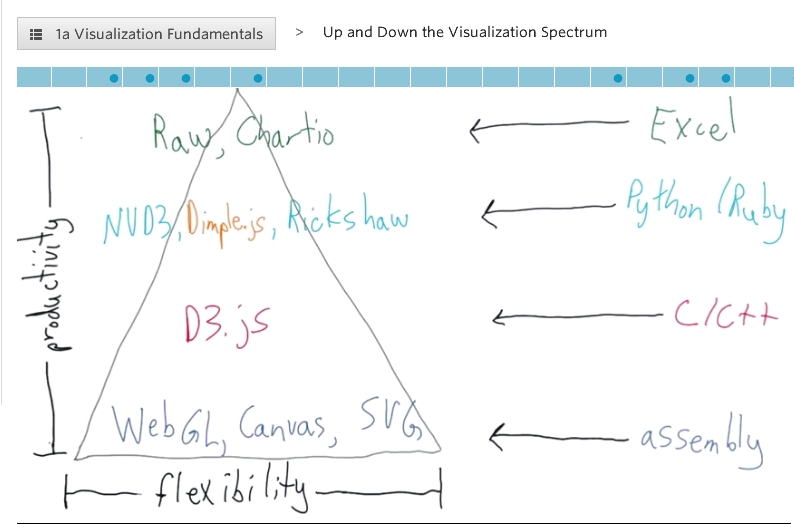 1a Visualization Fundamentals > Up and Down the Visualization Spectrum
Raw, Chartio ← Excel
NVD3, Dimple.js, Rickshaw ← Python/Ruby
D3.js ← C/C++
WebGL, Canvas, SVG ← assembly
productivity
flexibility